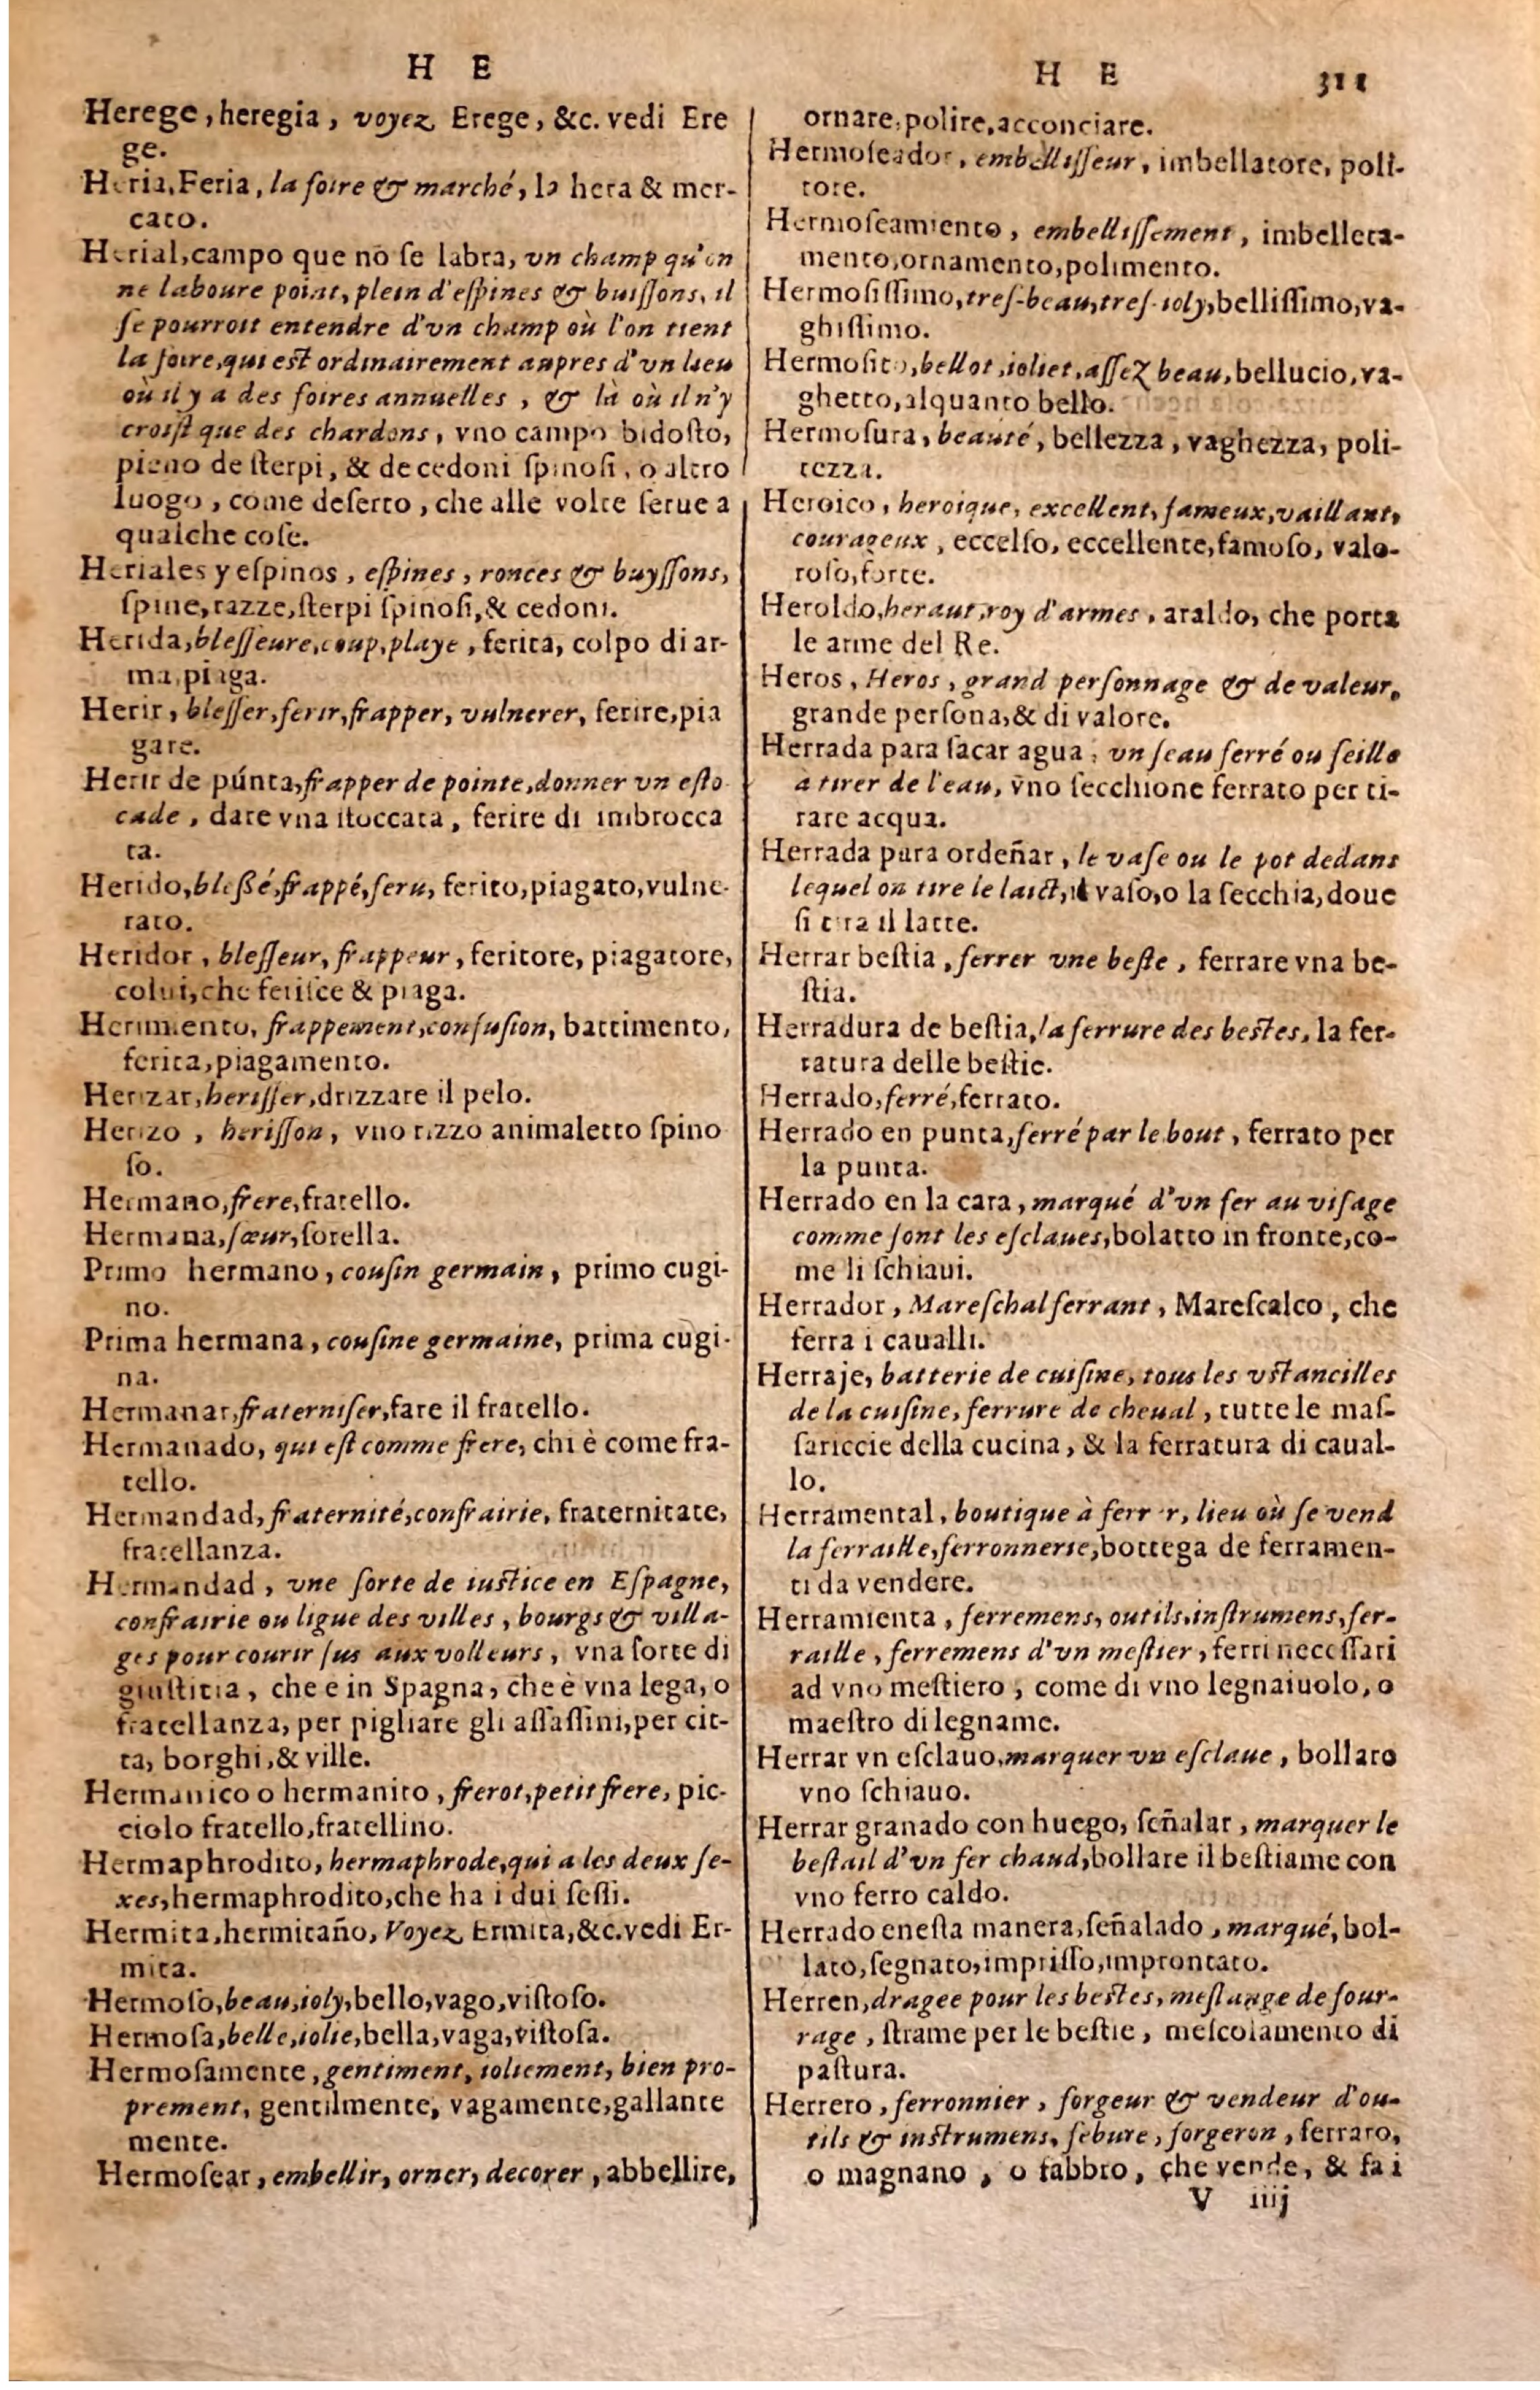 H E
Herege, heregia, voyez Erege, &c. vedi Ere
ge.
Heria, Feria, la foire & marché, la hera & mer-
cato.
Herial, campo que nō ſe labra, vn champ qu'on
ne laboure point, plein d'eſpines & buiſſons, il
ſe pourroit entendre d'vn champ où l'on tient
la foire, qui est ordinairement aupres d'vn lieu
où il y a des foires annuelles, & là où il n'y
croiſt que des chardons, vno campo bidoſto,
pieno de ſterpi, & de cedoni ſpinoſi, o altro
luogo, come deſerto, che alle volte ſerue a
qualche coſe.
Heriales y eſpinos, eſpines, ronces & buyſſons,
ſpine, razze, ſterpi ſpinoſi, & cedoni.
Herida, bleſſeure, coup, playe, ferita, colpo di ar-
ma, piaga.
Herir, bleſſer, ferir, frapper, vulnerer, ferire, pia
gare.
Herir de púnta, frapper de pointe, donner vn eſto
cade, dare vna ſtoccata, ferire di imbrocca
ta.
Herido, bleßé, frappé, feru, ferito, piagato, vulne-
rato.
Heridor, bleſſeur, frappeur, feritore, piagatore,
colui, che feriſce & piaga.
Herimiento, frappement, confuſion, battimento,
ferita, piagamento.
Herizar, heriſſer, drizzare il pelo.
Herizo, heriſſon, vno rizzo animaletto ſpino
ſo.
Hermano, frere, fratello.
Hermana, ſœur, ſorella.
Primo hermano, couſin germain, primo cugi-
no.
Prima hermana, couſine germaine, prima cugi-
na.
Hermanar, fraterniſer, fare il fratello.
Hermanado, qui eſt comme frere, chi è come fra-
tello.
Hermandad, fraternité, confrairie, fraternitate,
fratellanza.
Hermandad, vne ſorte de iustice en Eſpagne,
confrairie ou ligue des villes, bourgs & villa-
ges pour courir ſus aux volleurs, vna ſorte di
giuſtitia, che e in Spagna, che è vna lega, o
fratellanza, per pigliare gli aſſaſſini, per cit-
ta, borghi, & ville.
Hermanico o hermanito, frerot, petit frere, pic-
ciolo fratello, fratellino.
Hermaphrodito, hermaphrode, qui a les deux ſe-
xes, hermaphrodito, che ha i dui ſeſſi.
Hermita, hermitaño, Voyez Ermita, &c. vedi Er-
mita.
Hermoſo, beau, ioly, bello, vago, viſtoſo.
Hermoſa, belle, iolie, bella, vaga, viſtoſa.
Hermoſamente, gentiment, ioliement, bien pro-
prement, gentilmente, vagamente, gallante
mente.
Hermoſear, embellir, orner, decorer, abbellire,
H E 311
ornare, polire, acconciare.
Hermoſeador, embelliſſeur, imbellatore, poli-
tore.
Hermoſeamiento, embelliſſement, imbelleta-
mento, ornamento, polimento.
Hermoſiſſimo, treſ-beau, treſ-ioly, belliſſimo, va-
ghiſſimo.
Hermoſito, bellot, ioliet, aſſez beau, bellucio, va-
ghetto, alquanto bello.
Hermoſura, beauté, bellezza, vaghezza, poli-
tezza.
Heroico, heroique, excellent, fameux, vaillant,
courageux, eccelſo, eccellente, famoſo, valo-
roſo, forte.
Heroldo, heraut, roy d'armes, araldo, che porta
le arme del Re.
Heros, Heros, grand perſonnage & de valeur,
grande perſona, & di valore.
Herrada para ſacar agua, vn ſeau ferré ou ſeille
à tirer de l'eau, vno ſecchione ferrato per ti-
rare acqua.
Herrada para ordeñar, le vaſe ou le pot dedans
lequel on tire le laict, il vaſo, o la ſecchia, doue
ſi tira il latte.
Herrar beſtia, ferrer vne beſte, ferrare vna be-
ſtia.
Herradura de beſtia, la ferrure des bestes, la fer-
ratura delle beſtie.
Herrado, ferré, ferrato.
Herrado en punta, ferré par le bout, ferrato per
la punta.
Herrado en la cara, marqué d'vn fer au viſage
comme ſont les eſclaues, bolatto in fronte, co-
me li ſchiaui.
Herrador, Mareſchal ferrant, Mareſcalco, che
ferra i caualli.
Herraje, batterie de cuiſine, tous les vſtancilles
de la cuiſine, ferrure de cheual, tutte le maſ-
ſariccie della cucina, & la ferratura di caual-
lo.
Herramental, boutique à ferrer, lieu où ſe vend
la ferraille, ferronnerie, bottega de ferramen-
ti da vendere.
Herramienta, ferremens, outils, inſtrumens, fer-
raille, ferremens d'vn meſtier, ferri neceſſari
ad vno meſtiero, come di vno legnaiuolo, o
maeſtro di legname.
Herrar vn eſclauo, marquer vn eſclaue, bollaro
vno ſchiauo.
Herrar granado con huego, ſeñalar, marquer le
beſtail d'vn fer chaud, bollare il beſtiame con
vno ferro caldo.
Herrado eneſta manera, ſeñalado, marqué, bol-
lato, ſegnato, impriſſo, improntato.
Herren, dragee pour les bestes, meſlange de four-
rage, ſtrame per le beſtie, meſcolamento di
paſtura.
Herrero, ferronnier, forgeur & vendeur d'ou-
tils & inſtrumens, febure, forgeron, ferraro,
o magnano, o fabbro, che vende, & fa i
V iiij